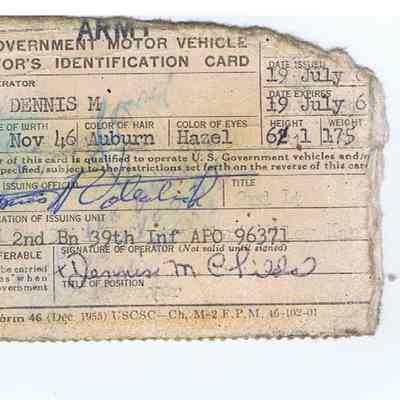 ARMY
GOVERNMENT MOTOR VEHICLE
OR'S IDENTIFICATION CARD
DATE ISSUED
19 July 6
ERATOR
DENNIS M
DATE EXPIRES
19 July 6
OF BIRTH COLOR OF HAIR COLOR OF EYES HEIGHT WEIGHT
Nov 46 Auburn Hazel 62.1 175
er of this card is qualified to operate U.S. Government vehicles and/
specified, subject to the restrictions set forth on the reverse of this car
ISSUING OFFICIAL TITLE
CATION OF ISSUING UNIT
2nd Bn 39th Inf APO 96371
FERABLE SIGNATURE OF OPERATOR (Not valid until signed)
be carried x Dennis M Childs
es when
overnment TITLE OF POSITION
Form 46 (Dec. 1955) USCSC—Ch. M-2 F.P.M. 46-102-01